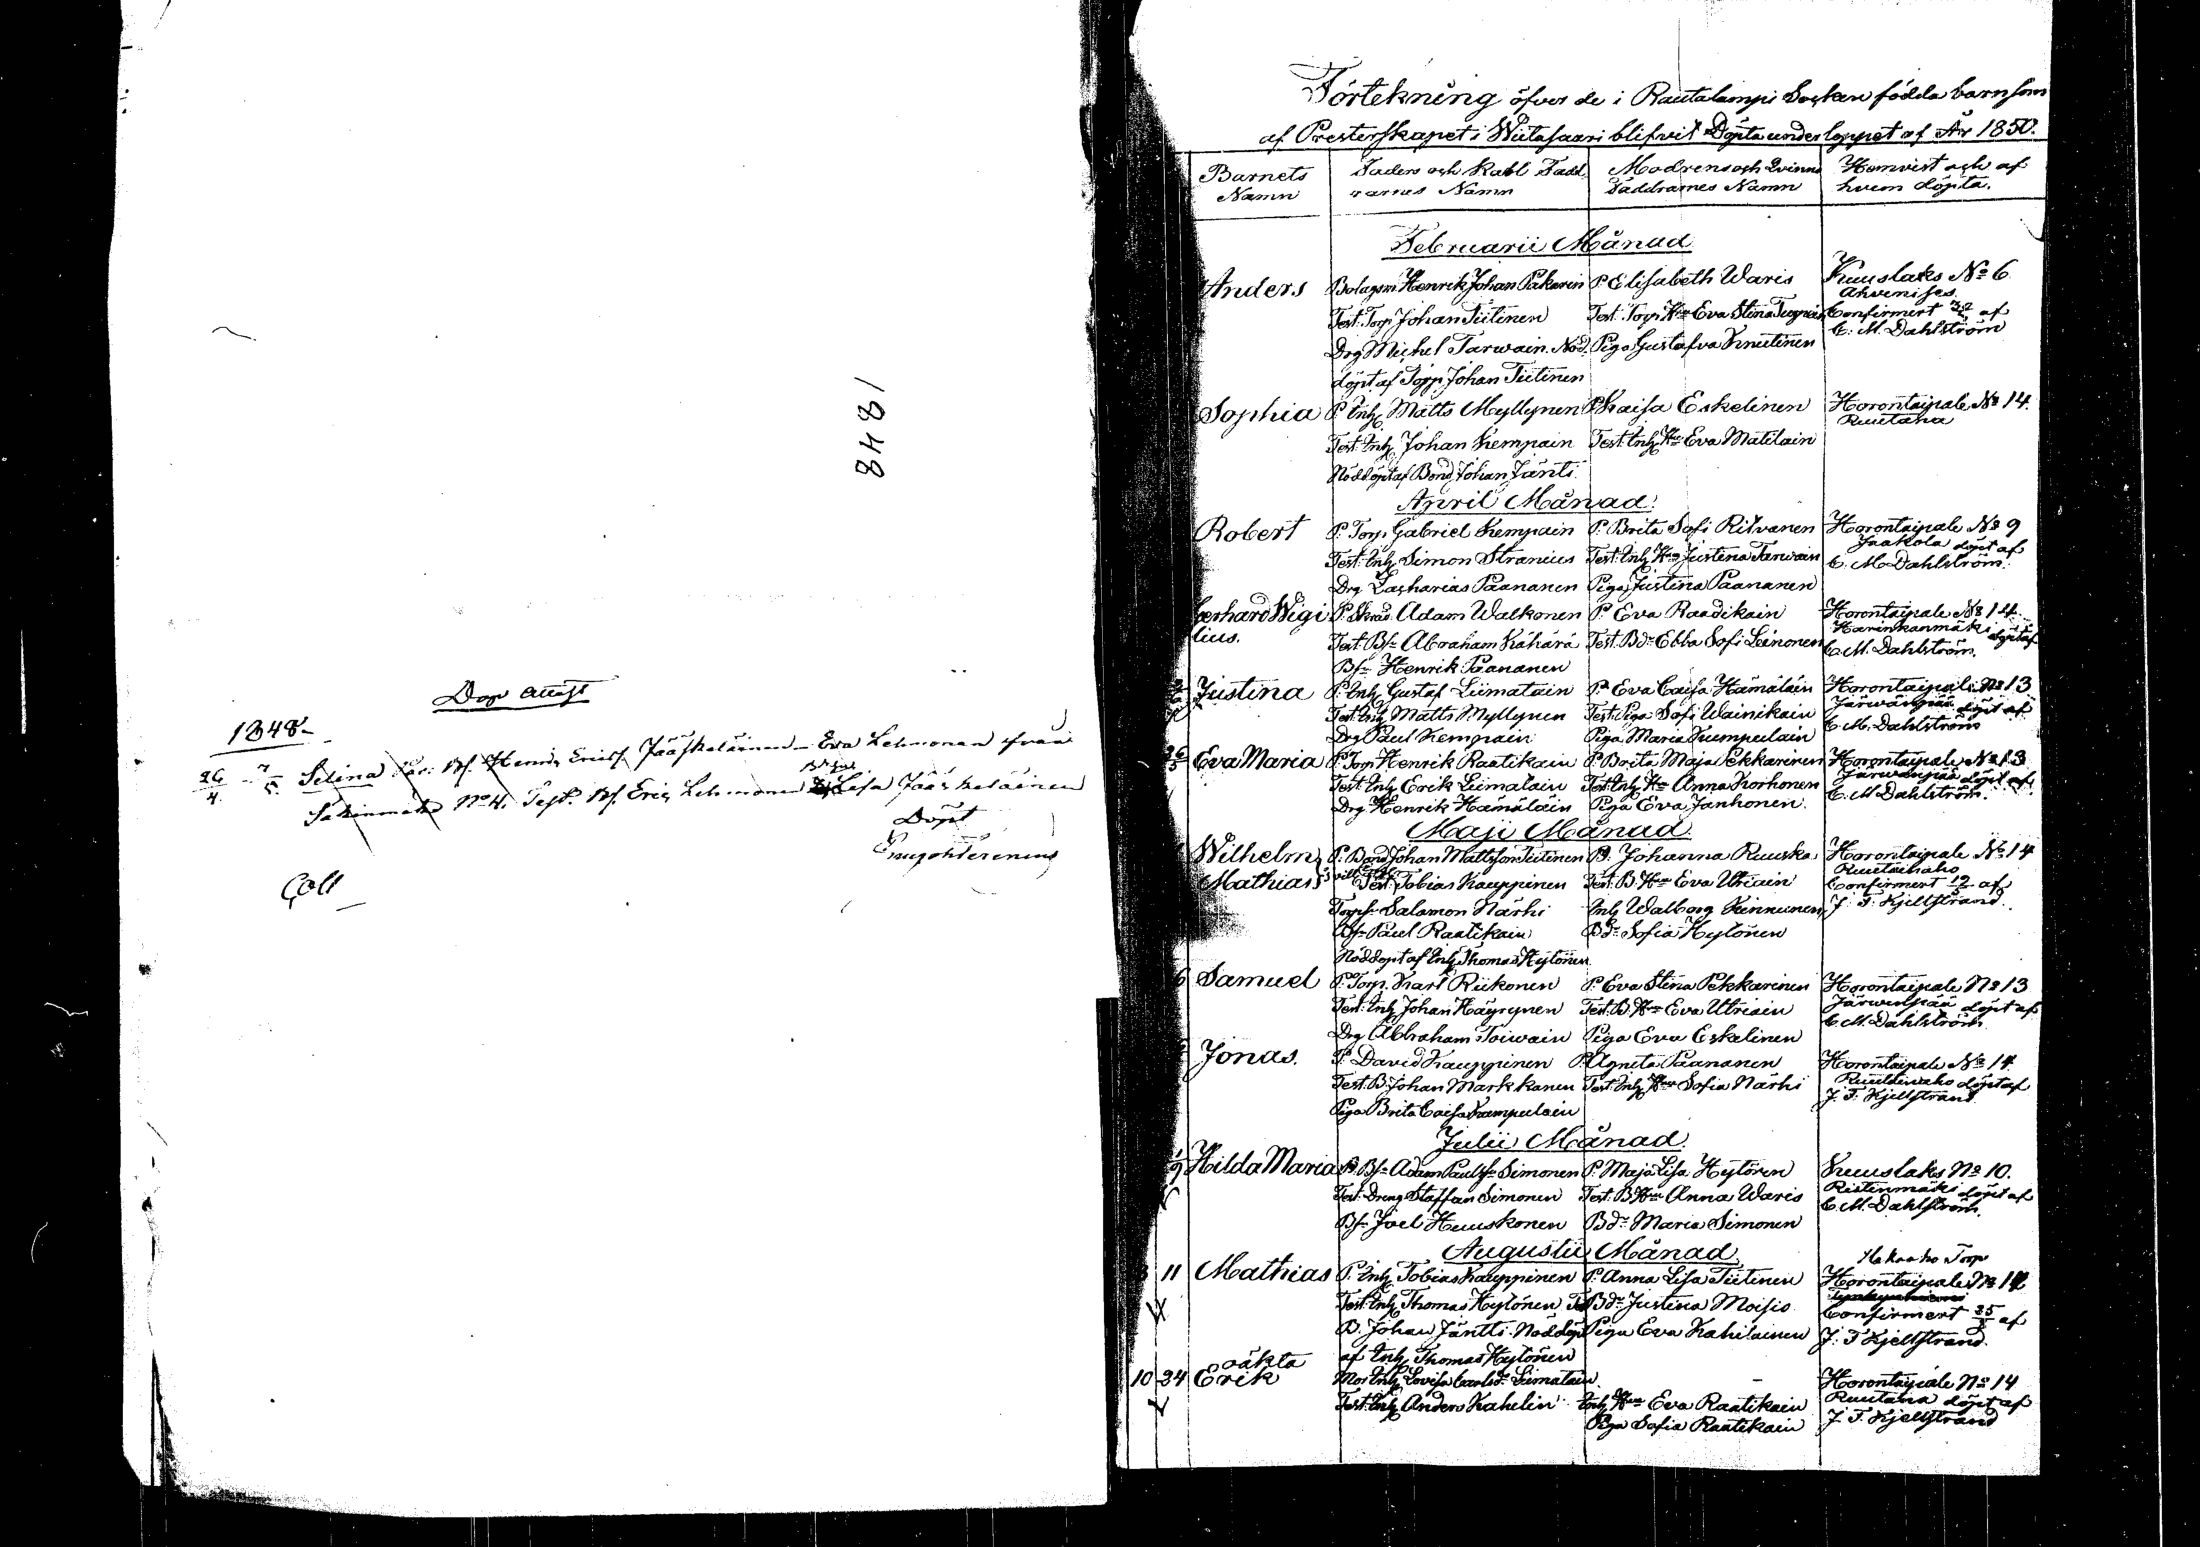 1848
Dop attest
1848
26/4 7/5 Selina För: Bf. Henric Ericsf. Jääskeläinen Eva Lehmonen ifrån
N:o 4. Test. Bf. Eric Lehmonen Lisa Jääskeläinen
Döpt
Coll
Förtekning öfver de i Rautalampi Socken födda barn som
af Presterskapet i Wiitasaari blifvit Döpta under loppet af År 1850.
Barnets Namn
Faders och Karl Faddrarnes Namn
Modrens och Qvinno Faddrarnes Namn
Hemvist och af hvem döpta.
Februarii Månad
Anders Bolagsm Henrik Johan Pakarin P. Elisabeth Waris Kuuslaks No 6
Ahvenises
Test: Torp Johan Tiitinen Test. Torp Hru Eva Stina Confirmert af
Drg Michel Tarwain. Nöd Piga Gustafva Knutinen C. M. Dahlström
döpt af Torp. Johan Tiitinen
Sophia P. Inh. Matts Myllynen P. Kaisa Eskelinen Horontaipale No 14.
Ruutana
Test. Inh. Johan Kempain Test. Inh. Hru Eva Matilain
Nöddöpt af Bond Johan Jäntti
April Månad
Robert P. Torp. Gabriel Kempain P. Brita Sofi Ritvanen Horontaipale No 9
Jaakola döpt af
Test. Inh Simon Stranius Test: Inh Hru Justina Tarvain C. M. Dahlström.
Drg Zacharias Paananen Piga Justina Paananen
Gerhard Wigi P. Skräd. Adam Walkonen P. Eva Raadikain Horontaipale No 14
lius. Harinkanmäki döpt af
Test. Bf. Abraham Kähärä Test. Bd. Ebba Sofi Leinonen C. M. Dahlström.
Bf. Henrik Paananen
Justina P. Inh Gustaf Liimatain P. Eva Caisa Hämäläin Horontaipale No 13
Järwänpää döpt af
Test. Inh Matts Myllynen Test. Piga Sofi Wainikain C. M. Dahlström
Drg Paul Kempain Piga Maria Kumpulain
26/5 Eva Maria P. Torp Henrik Raatikain P. Brita Maja Pekkarinen Horontaipale No 13
Järwänpää döpt af
Test. Inh Erik Liimatain Test. Inh Hru Anna Korhonen C. M. Dahlström.
Drg Henrik Hämäläin Piga Eva Janhonen.
Maji Månad
Wilhelm P. Bond Johan Mattsson Tiitinen P. Johanna Ruuska Horontaipale No 14
Mathias Test. Tobias Kauppinen Test. B. Hru Eva Utriain Confirmert 12 af
Torps. Salamon Närhi Inh Walborg Kinnunen J. F. Kjellstrand.
Bf. Paul Raatikain Bd. Sofia Hytönen
Nöddöpt af Inh Thomas Hytönen
6 Samuel P. Torp. Karl Riikonen P. Eva Stina Pekkarinen Horontaipale No 13
Järwenpää döpt af
Test. Inh Johan Häyrynen Test. B. Hru Eva Utriain C. M. Dahlström
Drg Abbraham Toiwain Piga Eva Eskelinen
Jonas. P. David Kauppinen P. Agneta Paananen Horontaipale No 14
döpt af
Test. B. Johan Markkanen Test. Inh Hru Sofia Närhi J. F. Kjellstrand
Piga Brita Caisa Kumpulain
Julii Månad.
Hilda Maria P. Bf. Adam Paulsf. Simonen P. Maja Lisa Hytönen Kuuslaks No 10.
Ristinmäki döpt af
Test. Dreng Staffan Simonen Test. B. Hru Anna Waris C. M. Dahlström
Bf. Joel Huuskonen Bd. Maria Simonen
Augustii Månad
Hakoaho Torp
11 Mathias P. Inh Tobias Kauppinen P. Anna Lisa Tiitinen Horontaipale No 14
Test. Inh Thomas Hytönen Bd. Justina Moisio Confirmert 25 af
B. Johan Jäntti. Nöddöpt Piga Eva Kahilainen J. F. Kjellstrand.
af Inh Thomas Hytönen
oäkta
10 24 Erik Mor Inh Lovisa Carlsd. Liimatain Horontaipale No 14
Test. Inh Anders Kahelin Inh Hru Eva Raatikain Ruutana döpt af
Piga Sofia Raatikain J. F. Kjellstrand